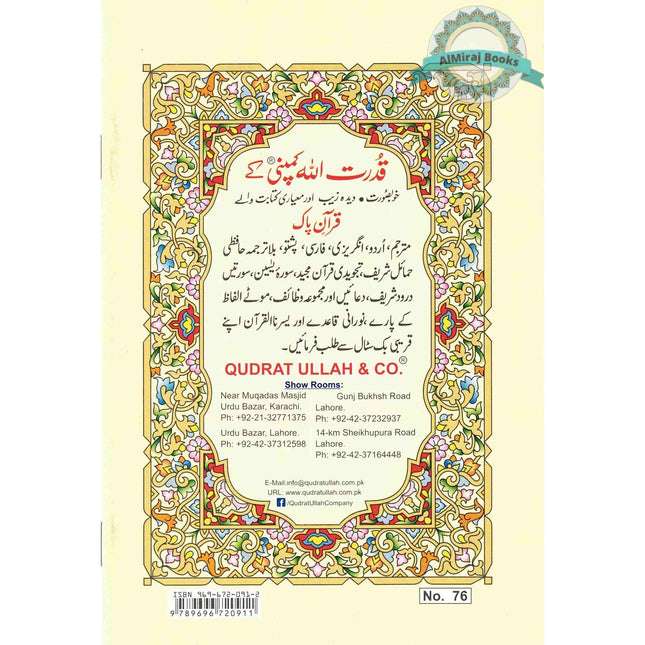 AlMiraj Books
قُدرت اللہ کمپنی® کے
خوبصورت • دیدہ زیب اور معیاری کتابت والے
قرآن پاک
مترجم، اُردو، انگریزی، فارسی، پشتو، بلا ترجمہ حافظی
حمائل شریف، تجویدی قرآن مجید، سورۂ یٰسین، سورتیں
درود شریف، دعائیں اور مجموعہ وظائف، موٹے الفاظ
کے پارے، نورانی قاعدے اور یسرنا القرآن اپنے
قریبی بک سٹال سے طلب فرمائیں۔
QUDRAT ULLAH & CO.®
Show Rooms:
Near Muqadas Masjid
Urdu Bazar, Karachi.
Ph: +92-21-32771375
Gunj Bukhsh Road
Lahore.
Ph: +92-42-37232937
Urdu Bazar, Lahore.
Ph: +92-42-37312598
14-km Sheikhupura Road
Lahore.
Ph: +92-42-37164448
E-Mail:info@qudratullah.com.pk
URL: www.qudratullah.com.pk
/QudratUllahCompany
ISBN 969-672-091-2
9789696720911
No. 76